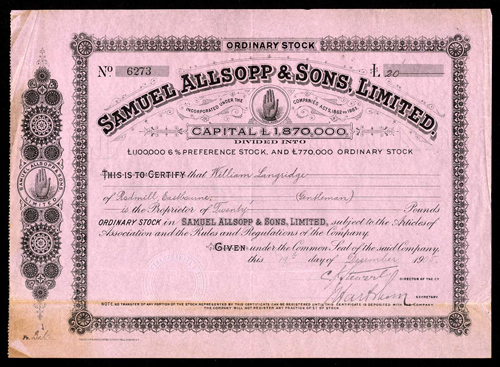 ORDINARY STOCK
No 6273
£ 20
SAMUEL ALLSOPP & SONS, LIMITED,
INCORPORATED UNDER THE COMPANIES ACTS, 1862 TO 1883.
CAPITAL £1,870,000,
DIVIDED INTO
£1,100,000 6% PREFERENCE STOCK, AND £770,000 ORDINARY STOCK
THIS IS TO CERTIFY that William Langridge
of Eastbourne, (Gentleman)
is the Proprietor of Twenty Pounds
ORDINARY STOCK in SAMUEL ALLSOPP & SONS, LIMITED, subject to the Articles of
Association and the Rules and Regulations of the Company.
GIVEN under the Common Seal of the said Company,
this day of December
DIRECTOR OF THE CO
SECRETARY
NOTE. NO TRANSFER OF ANY PORTION OF THE STOCK REPRESENTED BY THIS CERTIFICATE CAN BE REGISTERED UNTIL THIS CERTIFICATE HAS BEEN DEPOSITED WITH THE COMPANY.
THE COMPANY WILL NOT REGISTER ANY FRACTION OF £1 OF STOCK
SAMUEL ALLSOPP & SONS
LIMITED